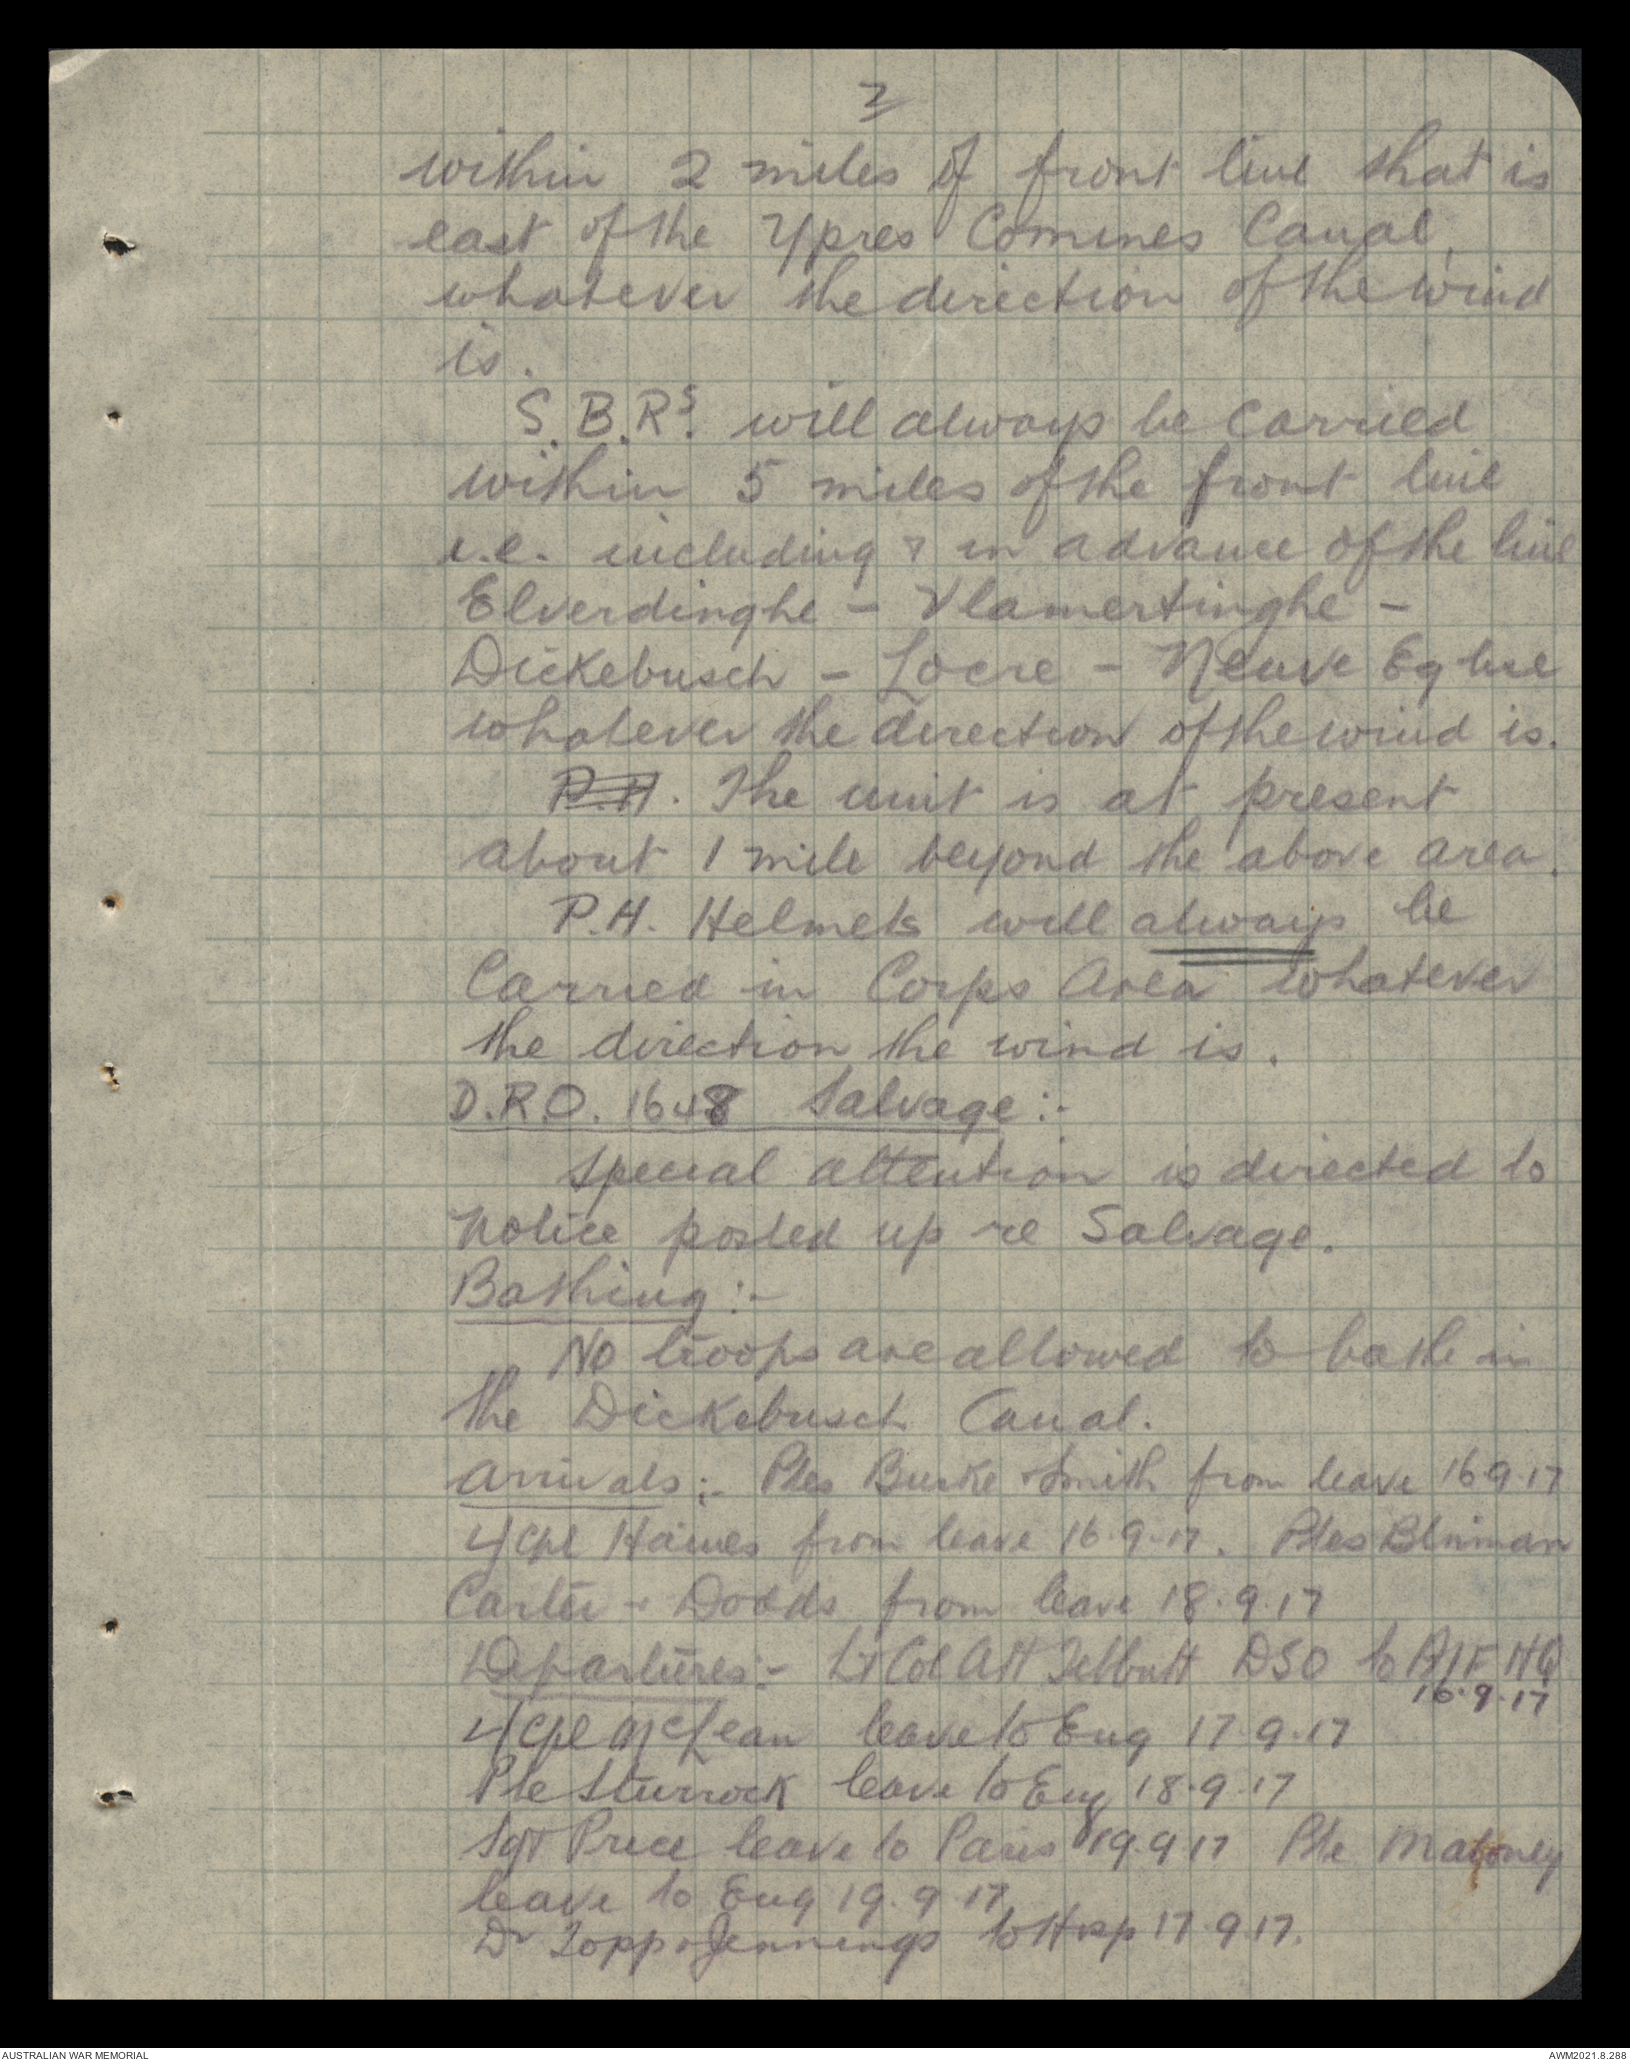 2
within 2 miles of front line that is
east of the Ypres Comines Canal,
whatever the direction of the wind
is.
S.B.Rs. will always be carried
within 5 miles of the front line
i.e. including & in advance of the line
Elverdinghe - Vlamertinghe -
Dickebusch - Locre - Neuve Eglise
whatever the direction of the wind is.
P.H. The unit is at present
about 1 mile beyond the above area.
P.H. Helmets will always be
Carried in Corps Area whatever
the direction the wind is.
D.R.O. 1648 Salvage:-
Special attention is directed to
Notice posted up re Salvage.
Bathing:-
No troops are allowed to bathe in
the Dickebusch Canal.
Arrivals:- Ptes Burke & Smith from leave 16.9.17
L/Cpl Haines from leave 16.9.17. Ptes Blinman
Carter & Dodds from leave 18.9.17
Departures:- Lt Col AH Tebbutt DSO to AIF HQ
16.9.17
L/Cpl McLean leave to Eng 17.9.17
Pte Sturrock leave to Eng 18.9.17
Sgt Price leave to Paris 19.9.17 Pte Maloney
leave to Eng 19.9.17
Dr Topp & Jennings to Hosp 17.9.17.
AUSTRALIAN WAR MEMORIAL
AWM2021.8.288